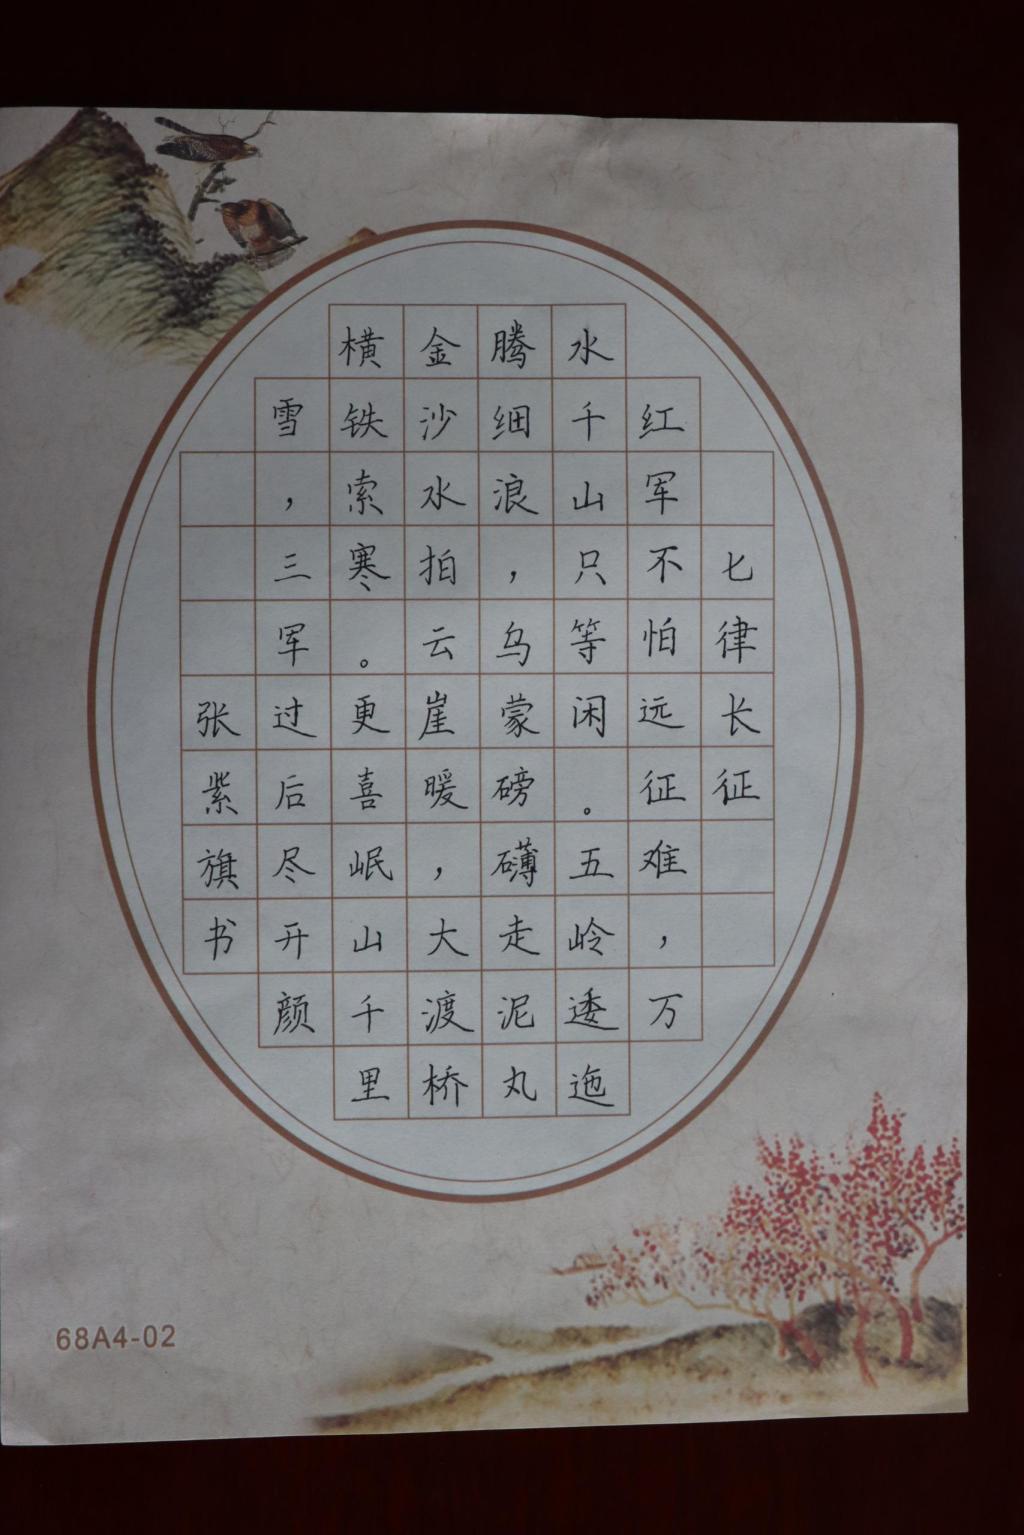 七律长征
红军不怕远征难，万
水千山只等闲。五岭逶迤
腾细浪，乌蒙磅礴走泥丸
金沙水拍云崖暖，大渡桥
横铁索寒。更喜岷山千里
雪，三军过后尽开颜
张紫旗书
68A4-02